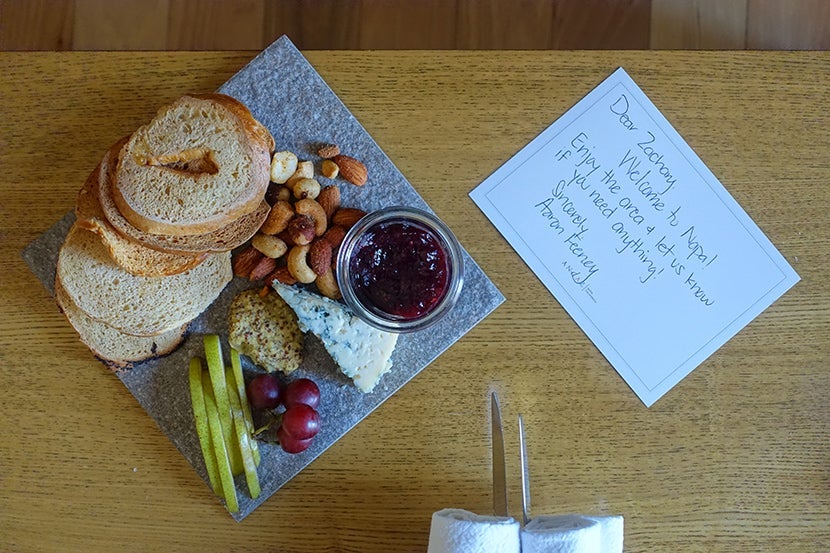 Dear Zachary
Welcome to Napa!
Enjoy the area & let us know
if you need anything!
Sincerely
Aaron Feeney